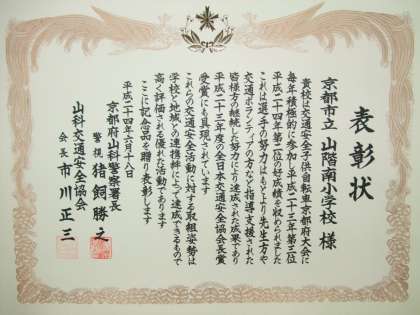 表彰状
京都市立 山階南小学校 様
貴校は交通安全子供自転車京都府大会に
毎年積極的に参加し平成二十三年第三位
平成二十四年第二位の好成績を収められました
これは選手の努力はもとより先生方や
交通ボランティアの方など指導支援された
皆様方の継続した努力により達成された成果であり
平成二十三年度の全日本交通安全協会長賞
受賞にも具現されています
これらの交通安全活動に対する取組姿勢は
学校と地域との連携絆によって達成できるもので
高く評価される優れた活動であります
ここに記念品を贈り表彰します
平成二十四年六月十八日
京都府山科警察署長
警視 猪飼勝之
山科交通安全協会
会長 市川正三